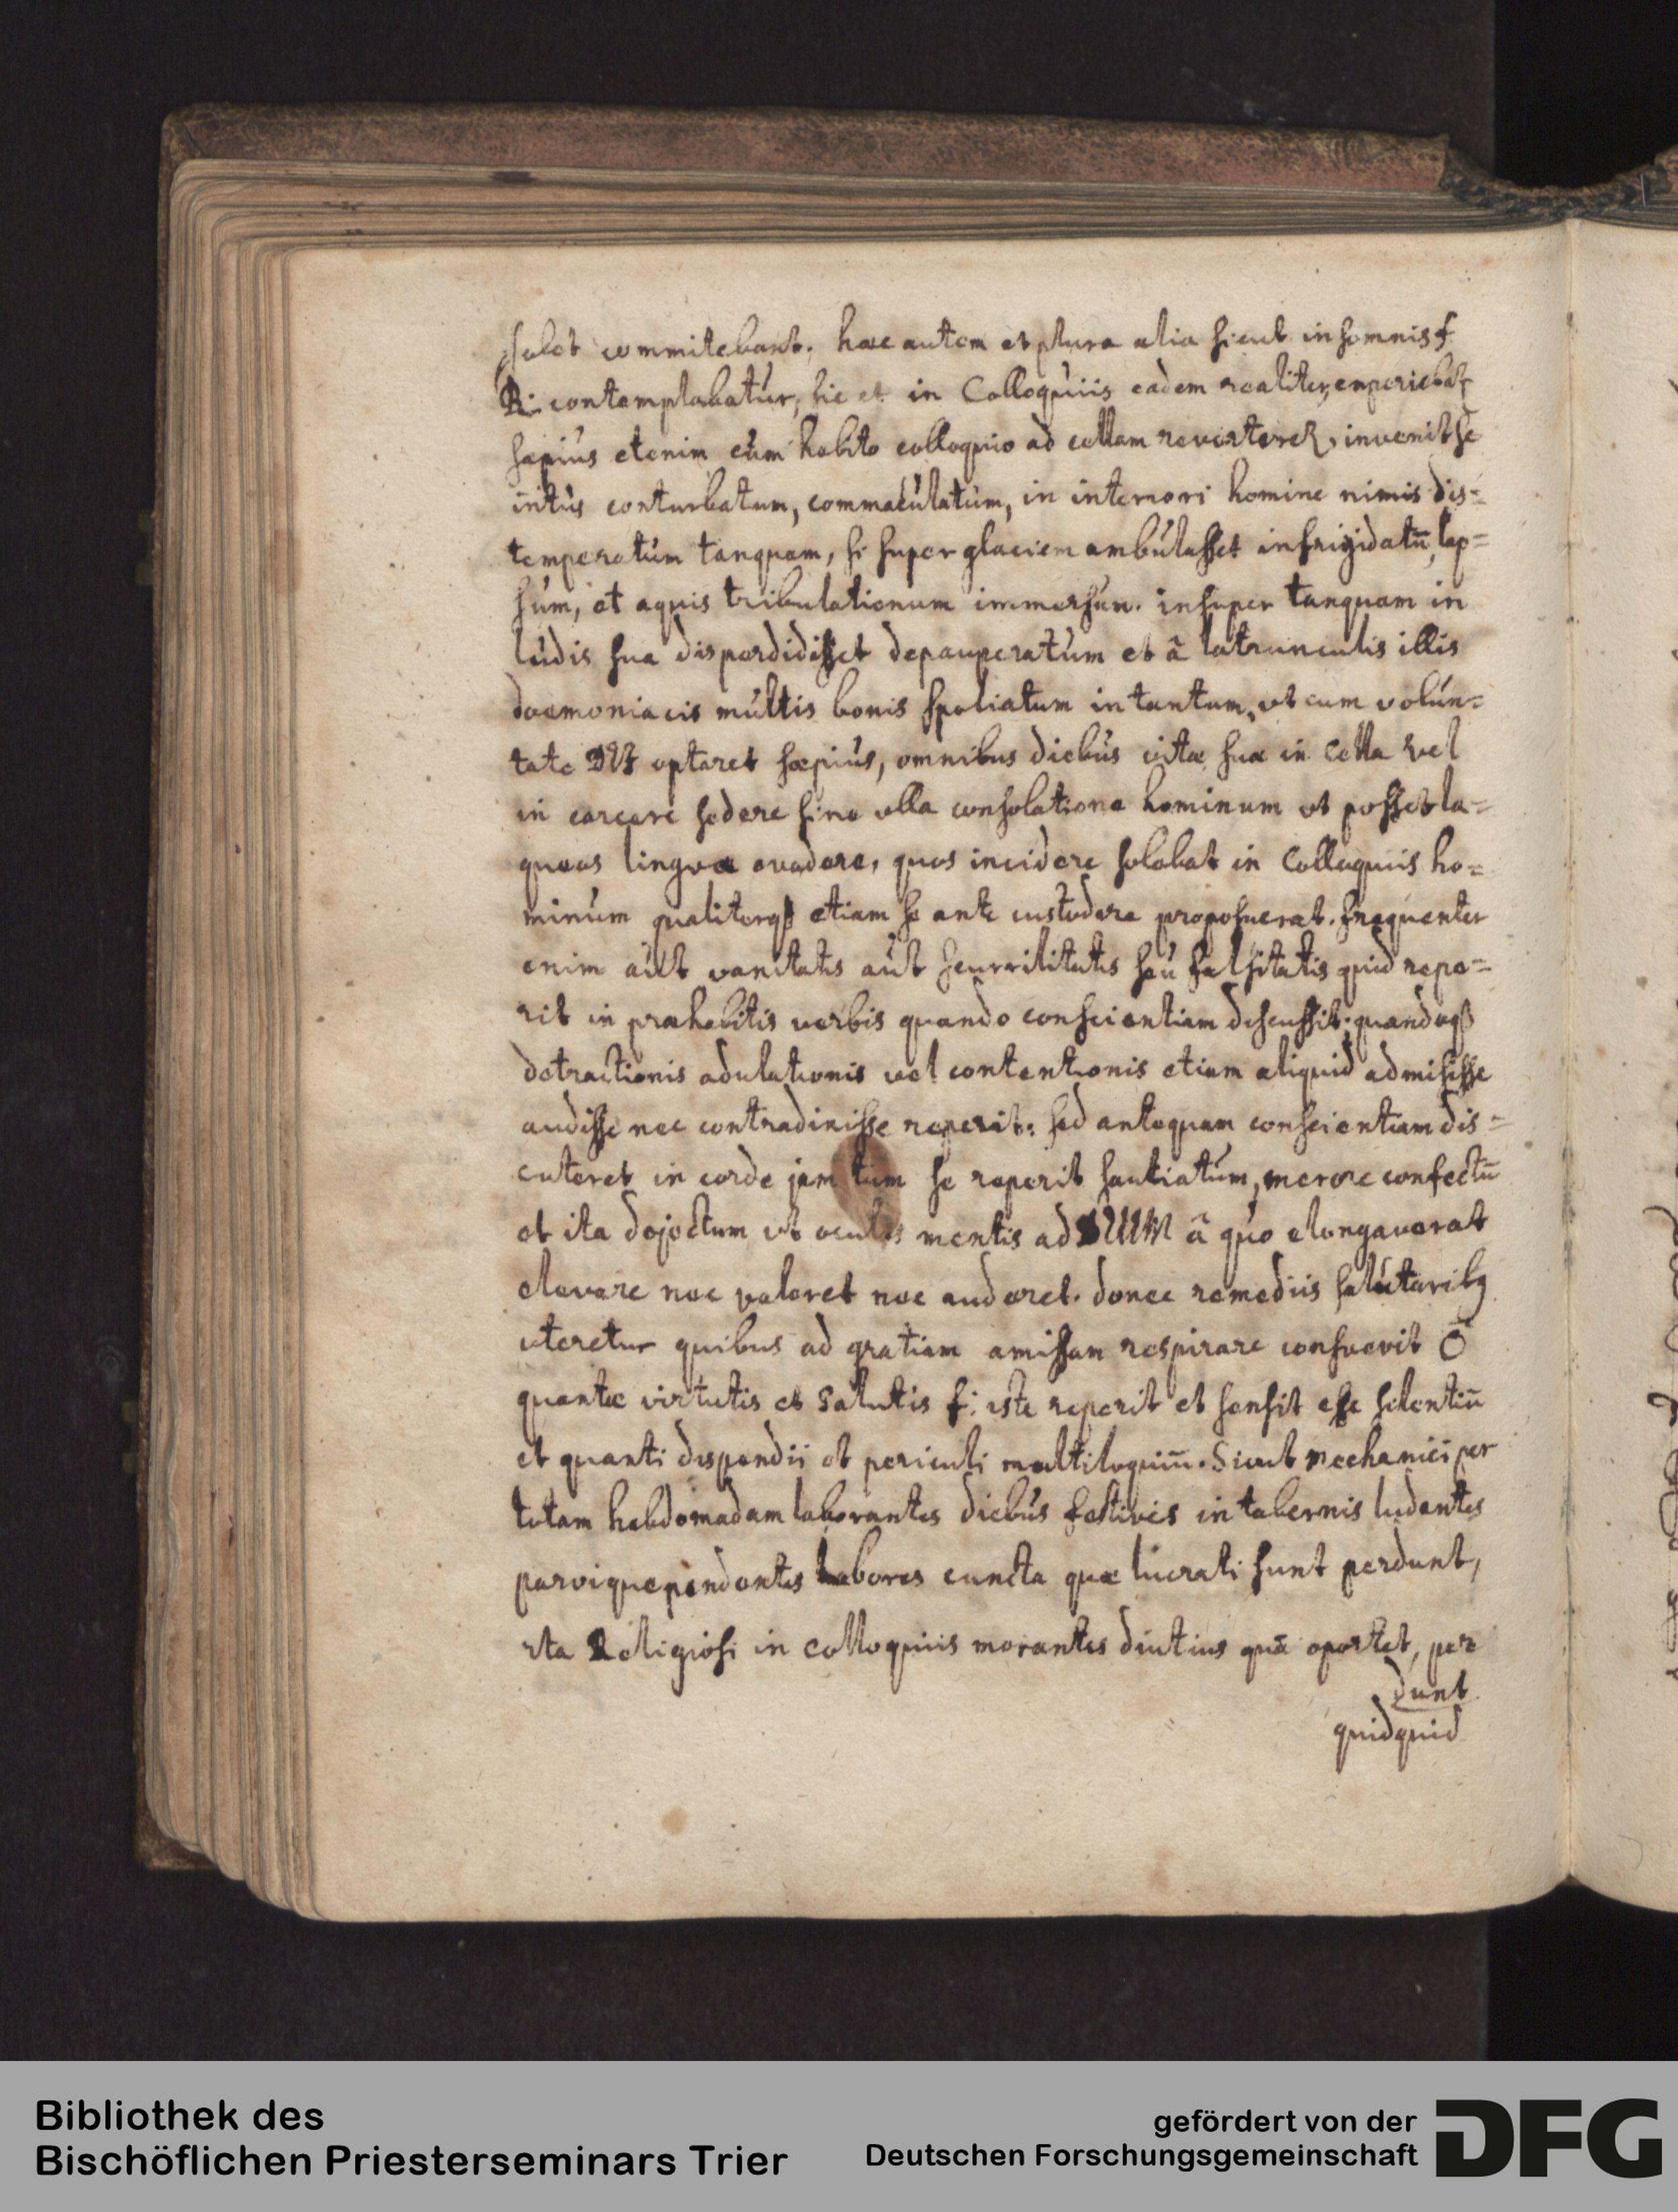 solet commitebant. haec autem et plura alia sicut in somnis f.
R: contemplabatur, sic et in Colloquiis eadem realiter experiebat
saepius etenim cum habito colloquio ad cellam reverteret, invenit se
intus conturbatum, commaculatum, in interiori homine nimis dis=
temperatum tanquam, si super glaciem ambulasset infrigidatū, lap=
sum, et aquis tribulationum immersum. insuper tanquam in
ludis sua disperdidisset depauperatum et â latrunculis illis
daemoniacis multis bonis spoliatum in tantum, ut cum volun=
tate DEI optaret saepius, omnibus diebus vitae suae in Cella vel
in carcere sedere sine ulla consolatione hominum ut posset la=
queos linguae evadere, quos incidere solebat in Colloquiis ho=
minum qualiterqȝ etiam se ante custodire proposuerat. frequenter
enim aut vanitatis aut scurrilitatis seu falsitatis quid repe=
rit in praehabitis verbis quando conscientiam discussit: quandoqȝ
detractionis adulationis vel contentionis etiam aliquid admisisse
audisse nec contradixisse reperit: sed antequam conscientiam dis=
cuteret in corde jam tum se reperit sautiatum, merore confectū
et ita dejectum ut oculos mentis ad DEUM â quo elongaverat
elevare nec valeret nec auderet. donec remediis salutaribȝ
uteretur quibus ad gratiam amissam respirare consuevit Ō
quantae virtutis et Salutis f: iste reperit et sensit esse silentiū
et quanti dispendii et periculi multiloquiū. Sicut mechanici per
totam hebdomadam laborantes diebus festivis in tabernis ludentes
parvique pendentes labores cuncta quae lucrati sunt perdunt,
ita Religiosi in colloquiis morantes diutius quā oportet, per
dunt
quidquid
Bibliothek des
Bischöflichen Priesterseminars Trier
gefördert von der
Deutschen Forschungsgemeinschaft
DFG